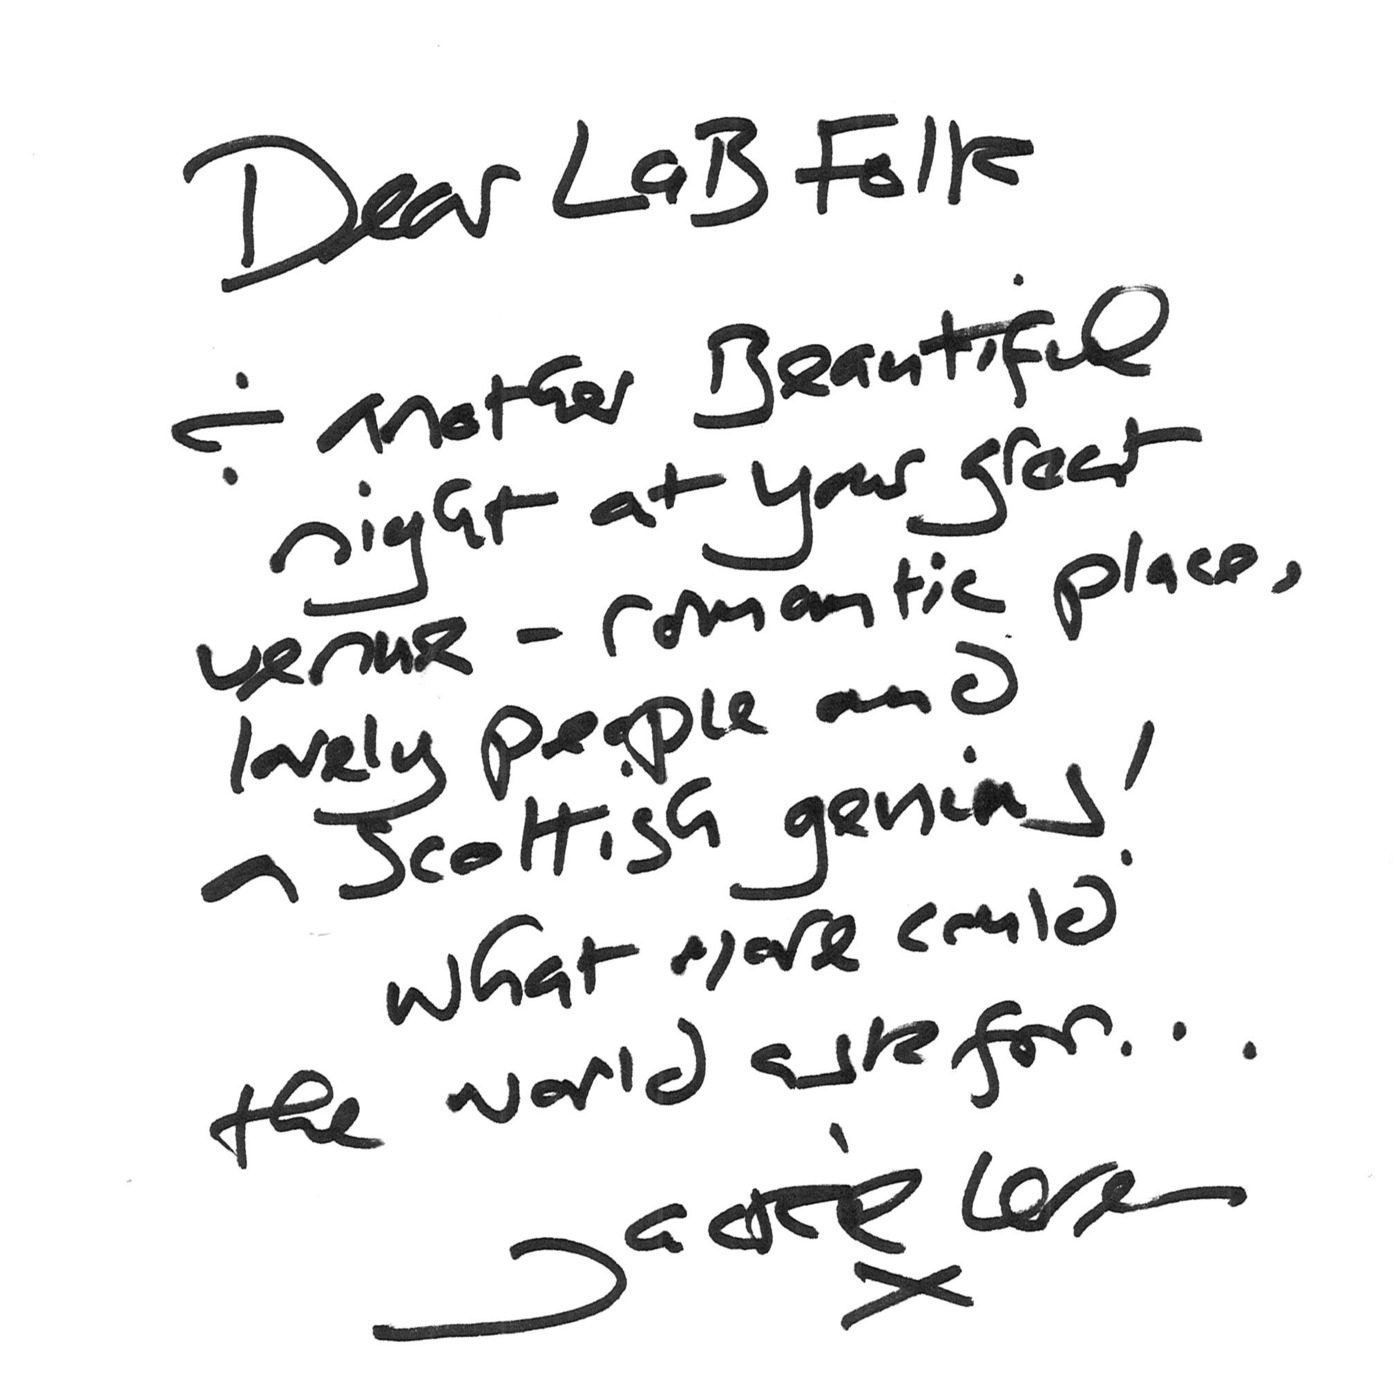 Dear LaB Folk
÷ another Beautiful
night at your great
venue - romantic place,
lovely people and
a Scottish genius!
what more could
the world ask for...
Jackie Leven
X